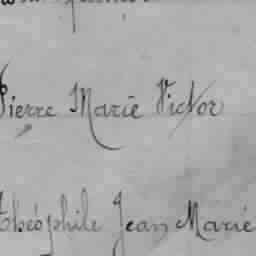 Pierre Marie Victor
Théophile Jean Marie